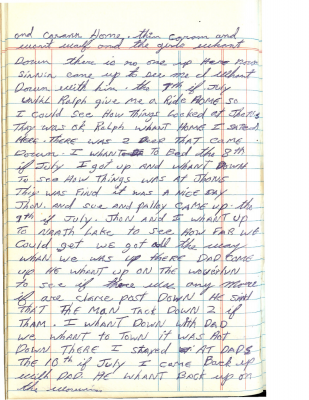 and Coram Home. then Coram and
went wolf and the girls whant
Down there is no one up Here now
came up to see me I whant
Down with him. the 7th if July
until Ralph give me a Ride HOME so
I could see How things Looked at Jhons
Thy was ok Ralph whant HOME I stayed
HERE. THERE WAS 2 CAME
DOWN. I WHANT TO BED the 8th
if July I got up AND WHANT DOWN
TO SEE HOW THINGS WAS AT JHONS
Thy was FIND it was A NICE DAY
JHON. and sue and CAME UP. the
9th if July. JHON AND I WHANT UP
TO NORTH LAKE to SEE HOW FAR WE
Could get we got all the way
WHAN WE WAS UP THERE DAD COME
UP HE WHANT UP ON THE
to see if there was any more
if are clame post DOWN HE said
THAT THE MAN TACK DOWN 2 if
THAM. I WHANT DOWN with DAD
we WHANT to TOWN it was HOT
DOWN THERE I stayed AT DADS
THE 10th if July I came Back up
with DAD HE WHANT BACK up on
the